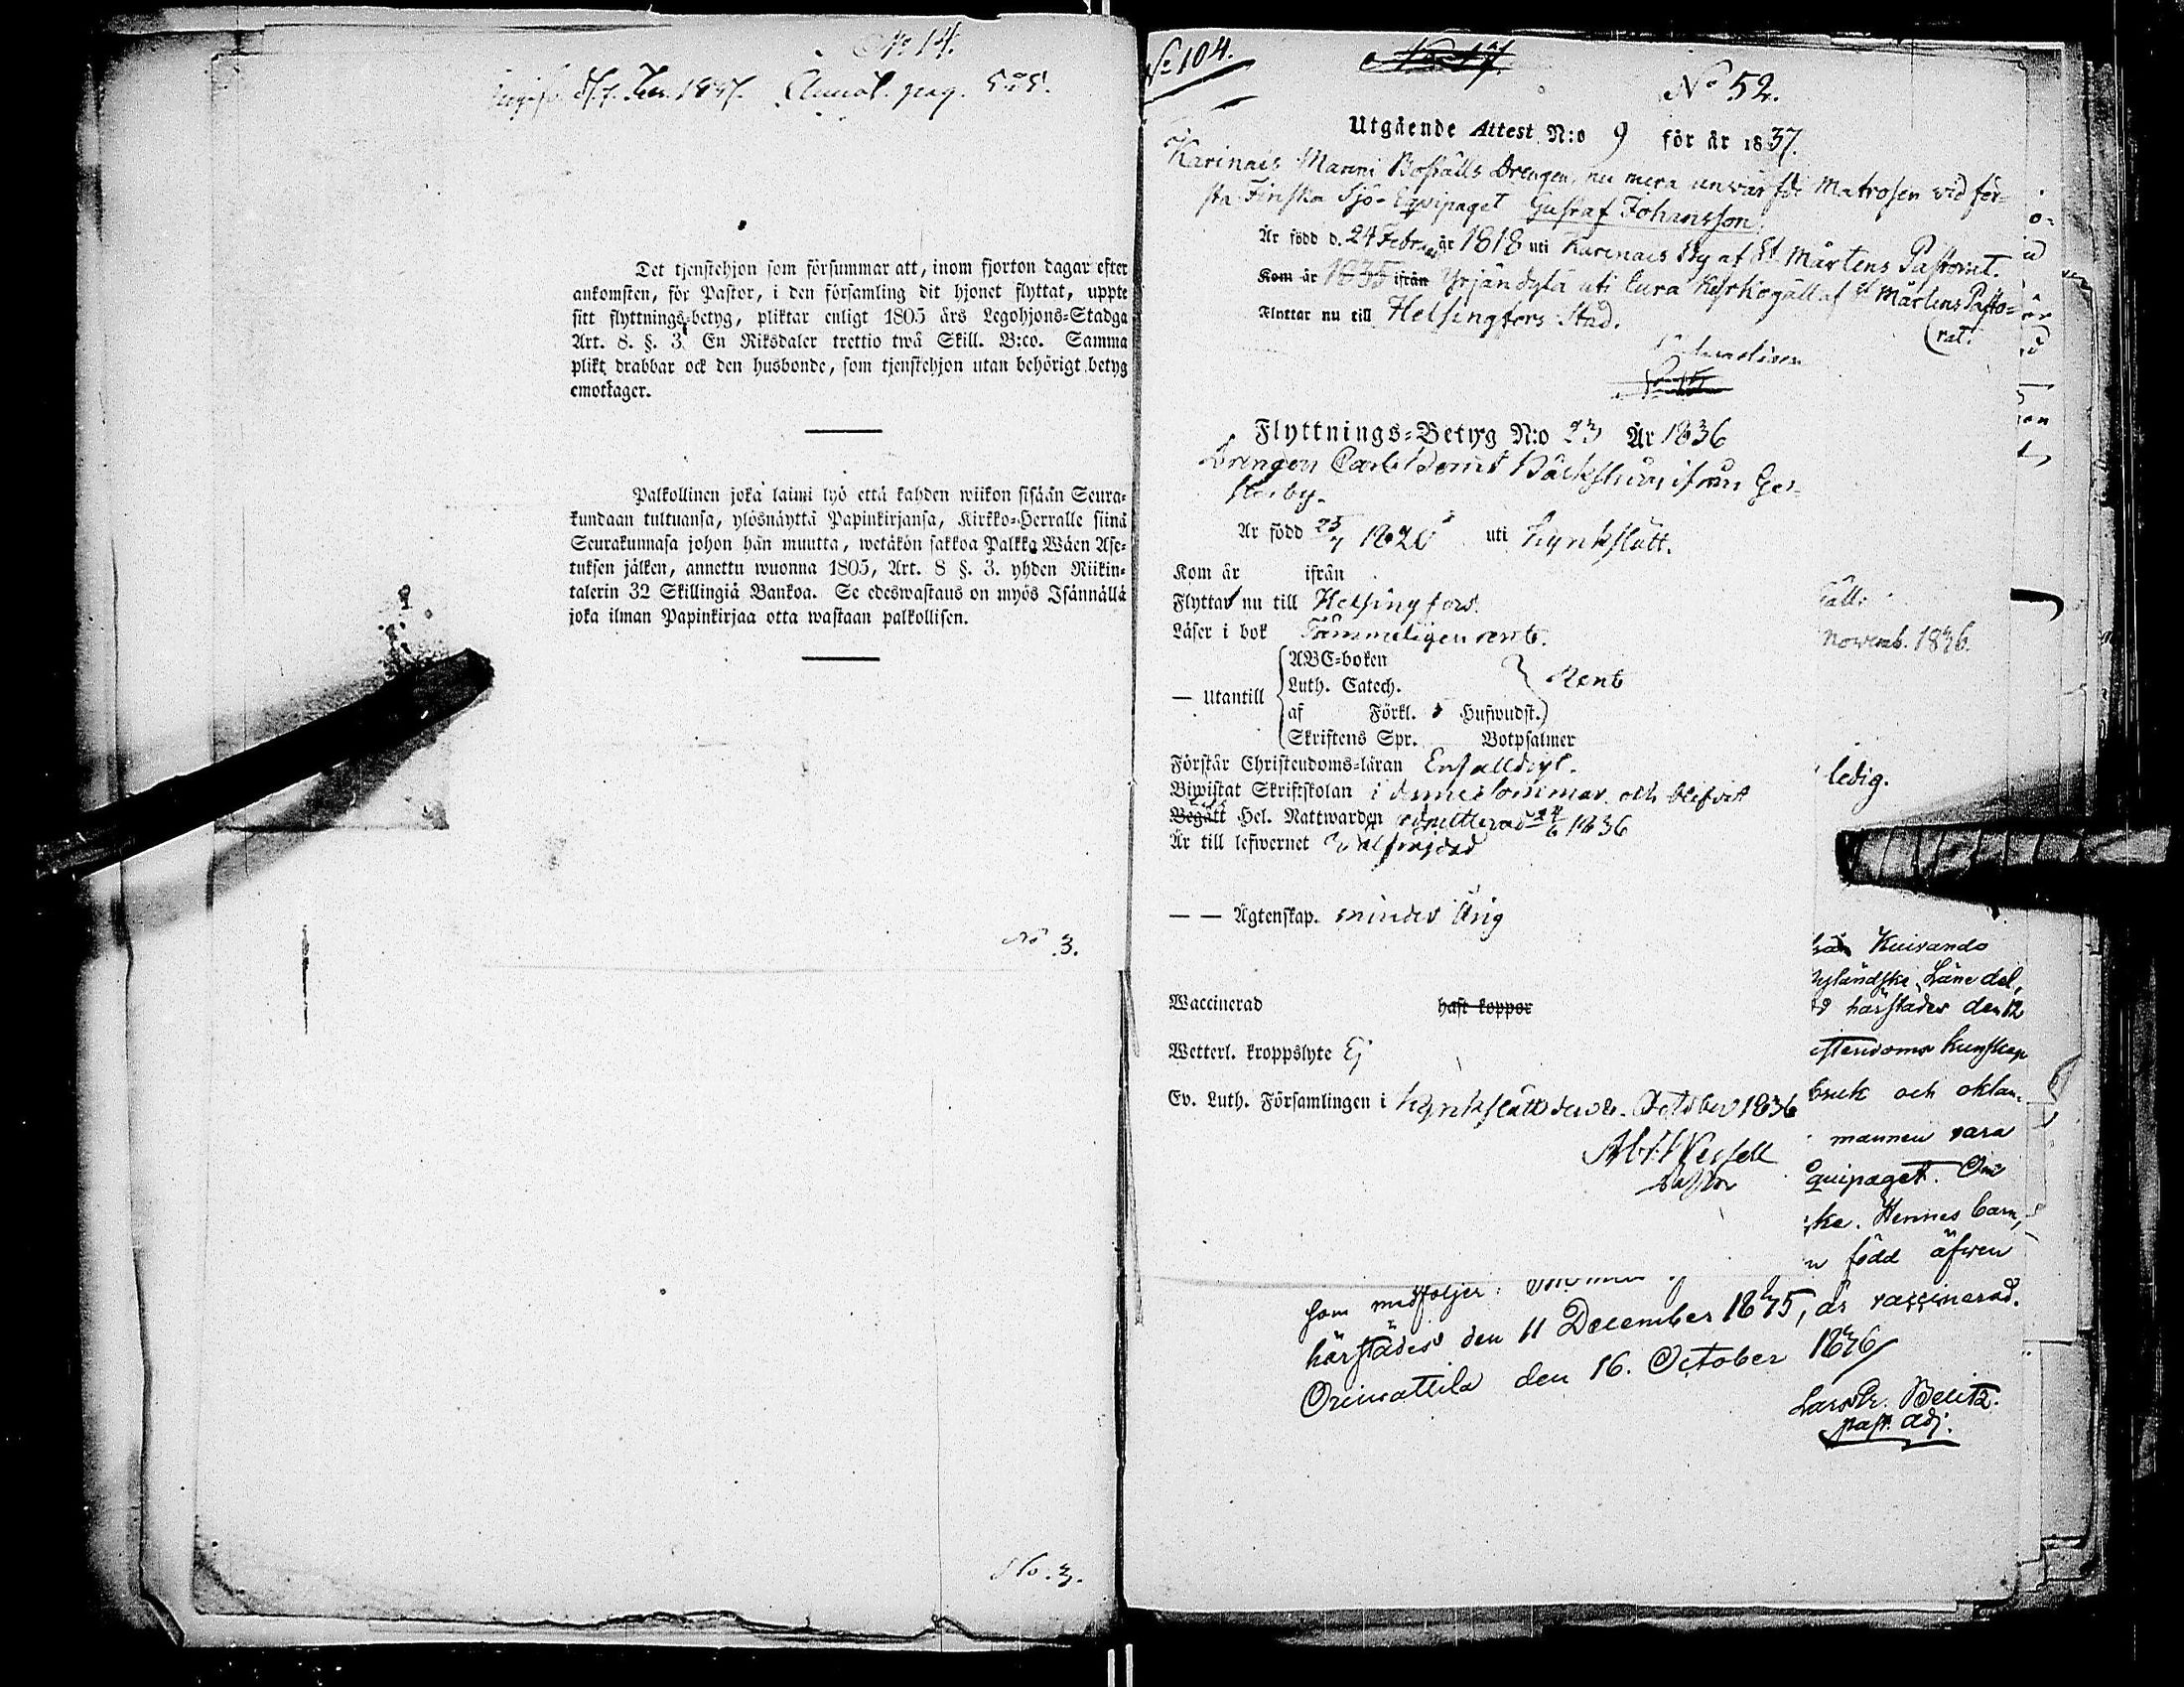 No 14.
1837. Annot. pag. 505.
Det tjenstehjon som försummar att, inom fjorton dagar efter
ankomsten, för Pastor, i den församling dit hjonet flyttat, uppte
sitt flyttnings-betyg, pliktar enligt 1805 års Legohjons-Stadga
Art. 8. §. 3. En Riksdaler trettio twå Skill. B:co. Samma
plikt drabbar ock den husbonde, som tjenstehjon utan behörigt betyg
emottager.
Palkollinen joka laimi lyö että kahden wiikon sisään Seura-
kundaan tultuansa, ylösnäyttä Papinkirjansa, Kirkko-Herralle siinä
Seurakunnasa johon hän muutta, wetäkön sakkoa Palkka Wäen Ase-
tuksen jälken, annettu wuonna 1805, Art. 8 §. 3. yhden Riikin-
talerin 32 Skillingiä Bankoa. Se edeswastaus on myös Isännällä
joka ilman Papinkirjaa otta wastaan palkollisen.
No 3.
No. 3.
No 104.
No 17.
No 52.
Utgående Attest N:o 9 för år 1837.
Karinais Manni Boställs Drengen, nu mera Matrosen vid för-
sta Finska Sjö-Equipaget Gustaf Johansson.
Är född d. 24 Febr. år 1818 uti Karinais By af St. Mårtens Pastorat.
Kom år 1835 ifrån Yrjänäylä uti Eura Kyrkogäll af St Mårtens Pasto-
(rat.
Flyttar nu till Helsingfors Stad.
Flyttnings-Betyg N:o 23 År 1836
Drengen Carl ifrån Ger-
sterby.
Är född 25/7 1820 uti Kyrkslätt.
Kom år ifrån
Flyttar nu till Helsingfors.
Läser i bok Tämmeligen rent.
— Utantill ABC-boken
Luth. Catech. } Rent
af Förkl. Hufwudst.
Skriftens Spr. Botpsalmer
Förstår Christendoms-läran Enfalldigt.
Biwistat Skriftskolan i denne Sommar och blifvit
Begått Hel. Nattwarden admitterad 24/6 1836
Är till lefwernet Wälfrejdad
— — Ägtenskap. minder årig
Waccinerad haft koppor
Wetterl. kroppslyte Ej
Ev. Luth. Församlingen i Kyrkslätt den October 1836
Pastor
gäll:
Novemb. 1836.
ledig.
från Kuivando
Nyländske Läne del,
härstädes den 12
istendoms kunskap
bruk och oklan-
mannen vara
quipaget. Om
ke. Hennes barn,
n född äfven
som medföljer:
härstädes den 11 December 1835, är vaccinerad.
Orimattila den 16. October 1836
Lars Belitz.
past. adj.